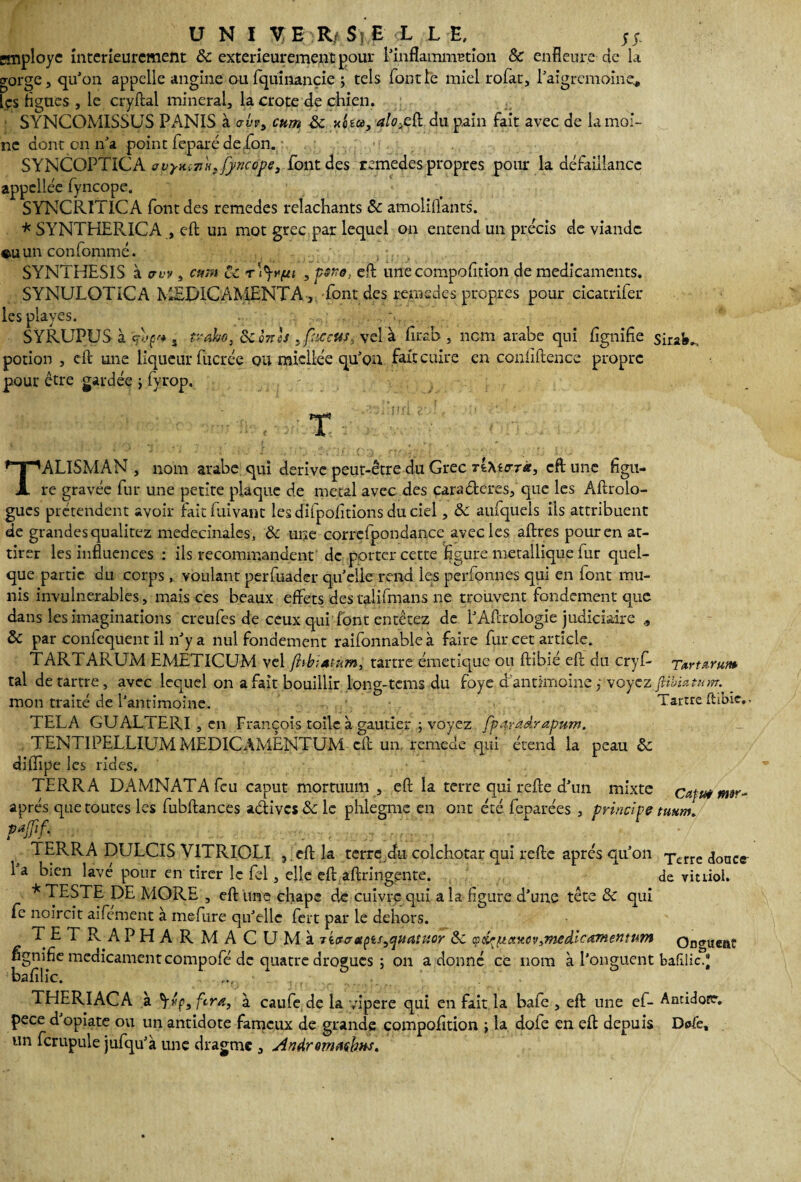 UNIVERSELLE. 55.
employe interieurement & exterieurement pour l'inflammation & enfleure de la
gorge, qu'on appelle angine ou ſquinancie ; tels ſont le miel roſat, l'aigremoine,
les figues, le cryſtal mineral, la crote de chien.
SYNCOMISSUS PANIS à σὺν, cum & alo, eſt du pain fait avec de la moi-
ne dont on n'a point ſeparé de ſon.
SYNCOPTICA ſyncope, ſont des remedes propres pour la défaillance
appellée ſyncope.
SYNCRITICA ſont des remedes relachants & amoliſſants.
* SYNTHERICA, eſt un mot grec par lequel on entend un précis de viande
ou un conſommé.
SYNTHESIS à συν, cum & pono, eſt une compoſition de medicaments.
SYNULOTICA MEDICAMENTA, ſont des remedes propres pour cicatriſer
les playes.
SYRUPUS à traho, & ſuccus, vel à ſirab, nom arabe qui ſignifie Sirab.
potion, eſt une liqueur ſucrée ou miellée qu'on fait cuire en conſiſtence propre
pour être gardée ; ſyrop.
T
TALISMAN, nom arabe qui derive peut-être du Grec eſt une figu-
re gravée ſur une petite plaque de metal avec des caracteres, que les Aſtrolo-
gues prétendent avoir fait ſuivant les diſpoſitions du ciel, & auſquels ils attribuent
de grandes qualitez medecinales, & une correſpondance avec les aſtres pour en at-
tirer les influences : ils recommandent de porter cette figure metallique ſur quel-
que partie du corps, voulant perſuader qu'elle rend les perſonnes qui en ſont mu-
nis invulnerables, mais ces beaux effets des taliſmans ne trouvent fondement que
dans les imaginations creuſes de ceux qui ſont entêtez de l'Aſtrologie judiciaire,
& par conſequent il n'y a nul fondement raiſonnable à faire ſur cet article.
TARTARUM EMETICUM vel ſtibiatum, tartre émetique ou ſtibié eſt du cryſ- Tartarum
tal de tartre, avec lequel on a fait bouillir long-tems du foye d'antimoine ; voyez ſtibiatum.
mon traité de l'antimoine. Tartre ſtibié.
TELA GUALTERI, en François toile à gautier ; voyez ſparadrapum.
TENTIPELLIUM MEDICAMENTUM eſt un remede qui étend la peau &
diſſipe les rides.
TERRA DAMNATA ſeu caput mortuum, eſt la terre qui reſte d'un mixte Caput mor-
aprés que toutes les ſubſtances actives & le phlegme en ont été ſeparées, principe tuum.
paſſif.
TERRA DULCIS VITRIOLI, eſt la terre du colchotar qui reſte aprés qu'on Terre douce
l'a bien lavé pour en tirer le ſel, elle eſt aſtringente. de vitriol.
* TESTE DE MORE, eſt une chape de cuivre qui a la figure d'une tête & qui
ſe noircit aiſément à meſure qu'elle ſert par le dehors.
TETRAPHARMACUM à quatuor & medicamentum Onguent
ſignifie medicament compoſé de quatre drogues ; on a donné ce nom à l'onguent baſilic.
baſilic.
THERIACA à fera, à cauſe de la vipere qui en fait la baſe, eſt une eſ- Antidote.
pece d'opiate ou un antidote fameux de grande compoſition ; la doſe en eſt depuis Doſe,
un ſcrupule juſqu'à une dragme, Andromachus.